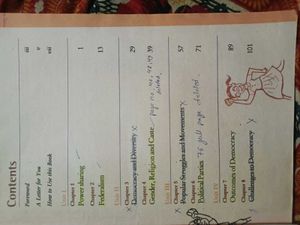 Contents
Foreword iii
A Letter for You v
How to Use this Book vii
Unit I
Chapter 1
Power sharing 1
Chapter 2
Federalism 13
Unit II
Chapter 3
Democracy and Diversity 29
Chapter 4
Gender, Religion and Caste 39
deleted.
Unit III
Chapter 5
Popular Struggles and Movements 57
Chapter 6
Political Parties 71
full page deleted.
Unit IV
Chapter 7
Outcomes of Democracy 89
Chapter 8
Challenges to Democracy 101